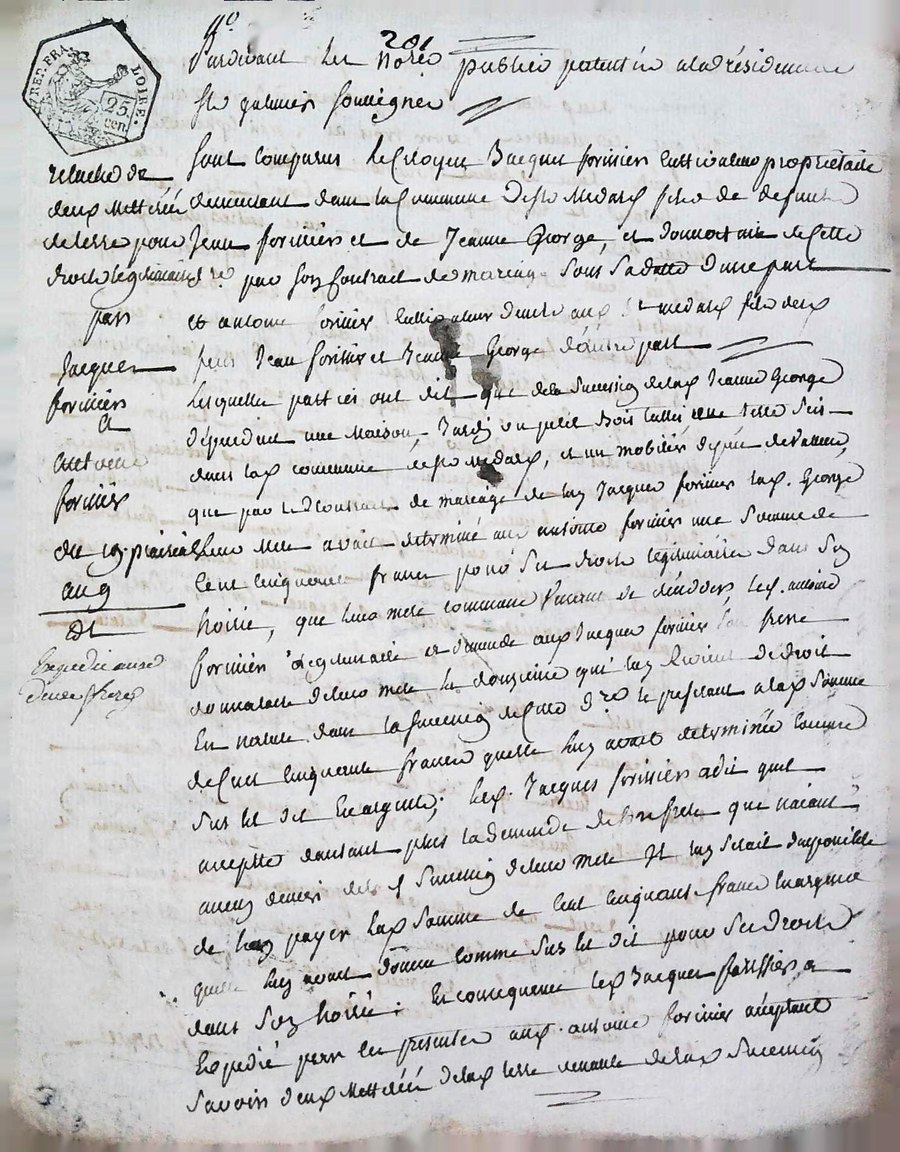 Nº
201
RÉP. FRA.
LOIRE.
25
cen.
Pardevant les notre public patenté a la résidence
St galmier soussigné
Sont comparus le Citoyen Jacques forissier cultivateur propriétaire
demeurant dans la Commune de St Medard fils de defunt
Jean forissier et de Jeanne George, et donnataire de cette
dre par son Contract de mariage sous sa datte d'une part
et antoine forissier cultivateur demt aud St medard fils desd
feus Jean forissier et Jeanne George d'autre part
lesquelles parties ont dit que de la succession de lad Jeanne George
dépendent une Maison, Jardin un petit Bois taillis une terre sis
dans lad commune de St Medard, et un mobilier de peu de valleur,
que par le Contract de mariage de lud Jacques forissier lad. George
leur Mere avait determiné aud antoine forissier une Somme de
Cent cinquante francs pour ses droits légitimaires dans son
hoirie, que leur mere commune venant de décéder led. antoine
forissier légitimaire demande aud Jacques forissier son frere
donnataire de leur mere le douzième qui luy Revient de droit
En nature dans la succession de cette dre le préférant a lad Somme
de Cent cinquante francs quelle luy avait determinée comme
sus est dit En argent; led. Jacques forissier a dit quil
accepte d'autant plus la demande de son frere que n'aiant
aucun denier de la succession de leur mere Il luy serait impossible
de luy payer lad Somme de Cent cinquante francs En argent
quelle luy avait donné comme sus est dit pour ses droits
dans son hoirie; En consequence led Jacques forissier a
Expedié par les presentes aud. antoine forissier acceptant
Savoir deux Metterées delad terre venante de lad Succession
relache de
deux Metterées
de terre pour
droits légitimaires
par
Jacques
forissier
a
antoine
forissier
du 19 prairial
an 9
dt
Expedié aux d
deux freres